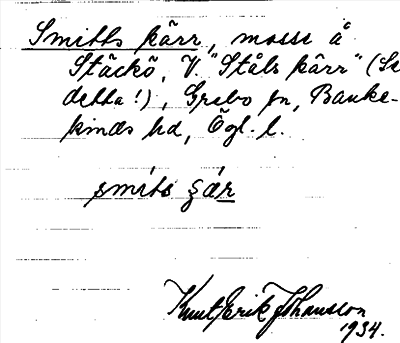 Smitts kärr, mosse å
Stäckö, V. "Ståls kärr" (Se
detta!), Grebo sn, Banke-
kinds hd, Ögl. l.
smits çær
Knut Erik Johansson
1934.